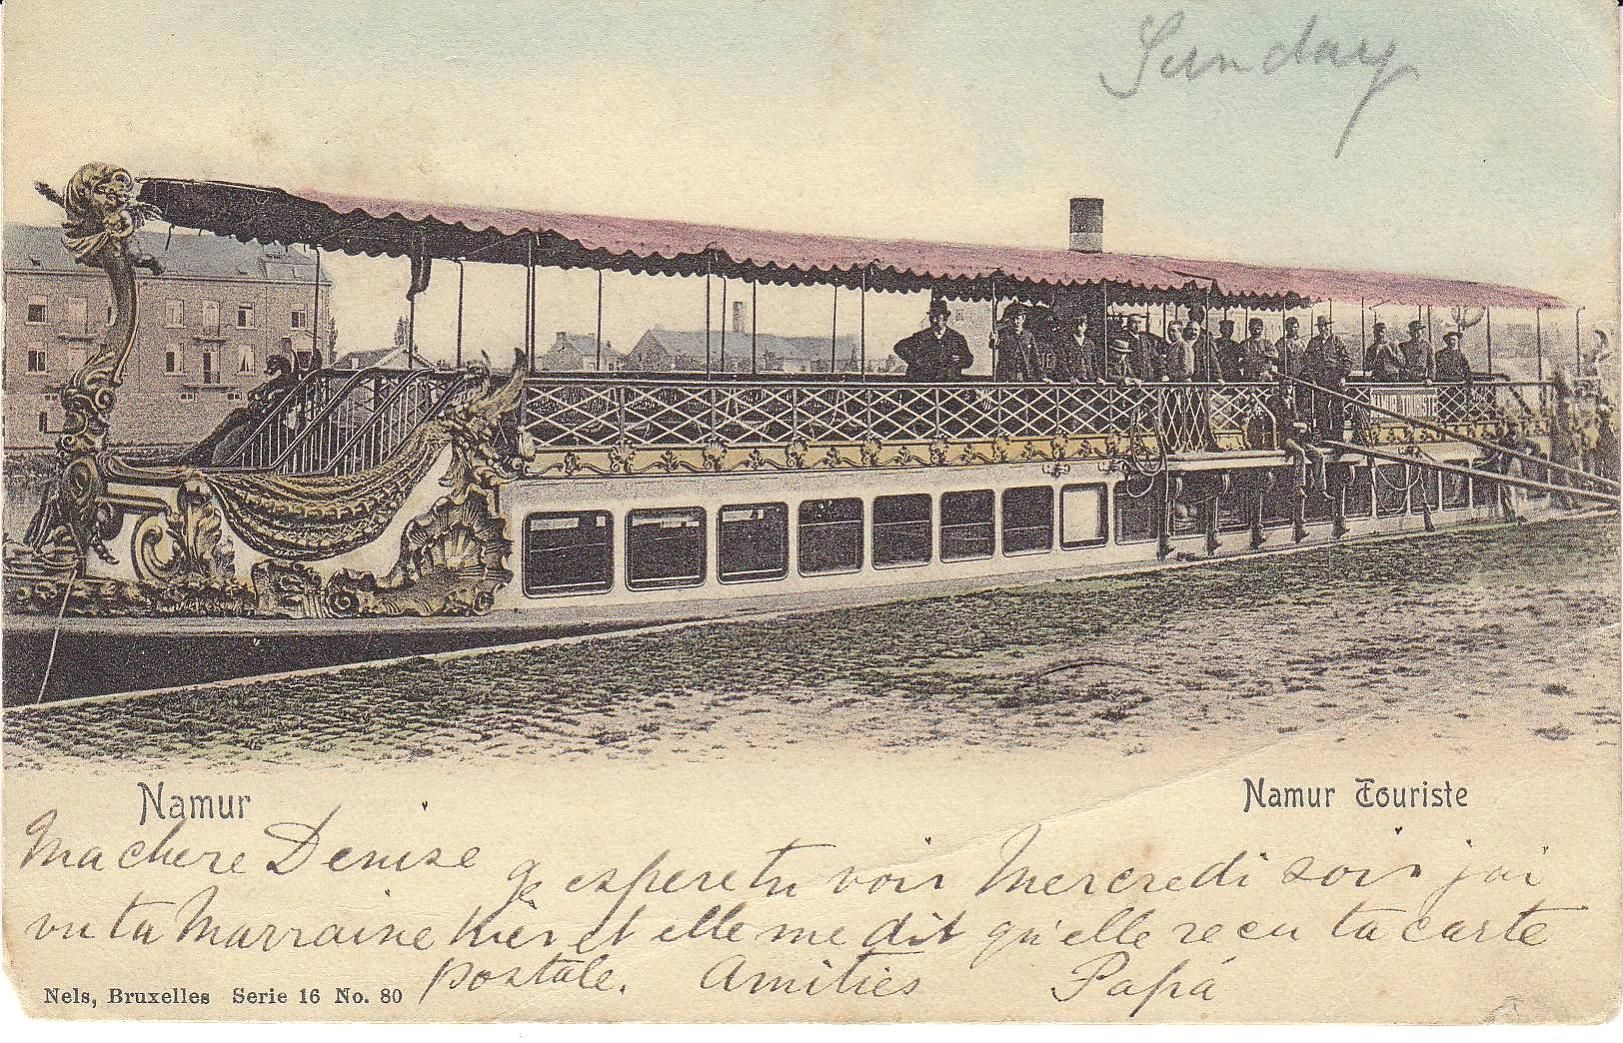 Sunday
NAMUR TOURISTE
Namur
Namur Touriste
Ma chere Denise
Je espere tu voir Mercredi soir j'ai
vu ta Marraine hier et elle me dit qu'elle recu ta carte
postale. Amities Papá
Nels, Bruxelles Serie 16 No. 80